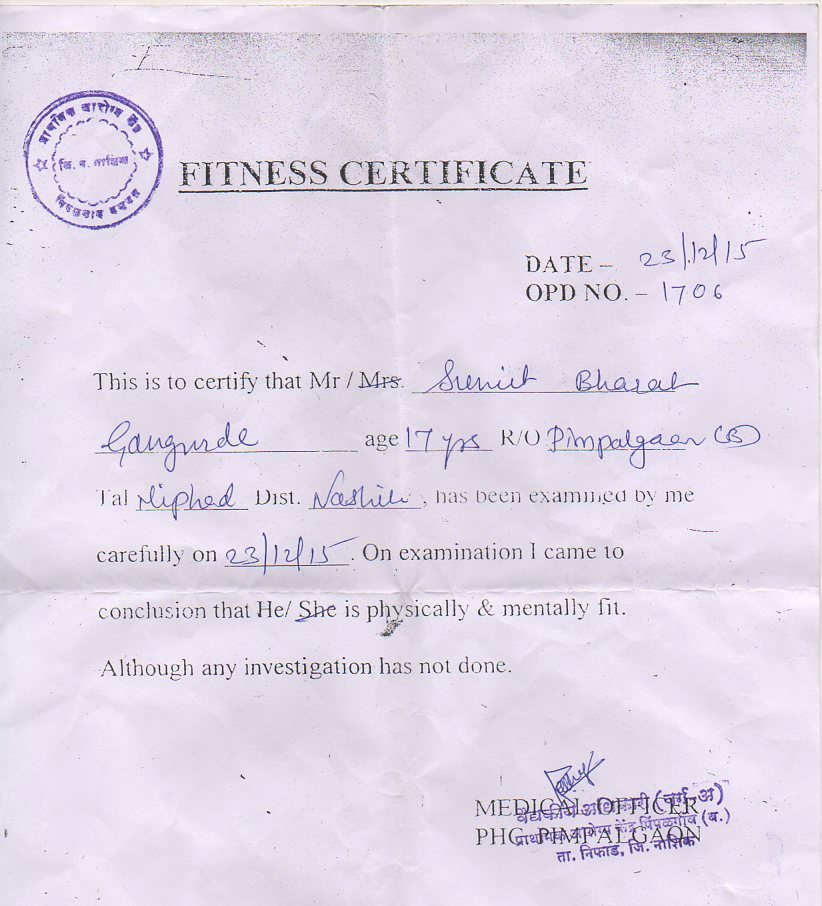 प्राथमिक आरोग्य केंद्र
जि. प. नाशिक
FITNESS CERTIFICATE
DATE – 23/12/15
OPD NO. – 1706
This is to certify that Mr / Mrs. Sumit Bharat
Gangurde age 17 yrs R/O Pimpalgaon (B)
Tal Niphad Dist. Nashik, has been examined by me
carefully on 23/12/15. On examination I came to
conclusion that He/ She is physically & mentally fit.
Although any investigation has not done.
MEDICAL OFFICER
वैद्यकीय अधिकारी (वर्ग-अ)
PHC PIMPALGAON
प्राथमिक आरोग्य केंद्र पिंपळगांव (ब.)
ता. निफाड, जि. नाशिक